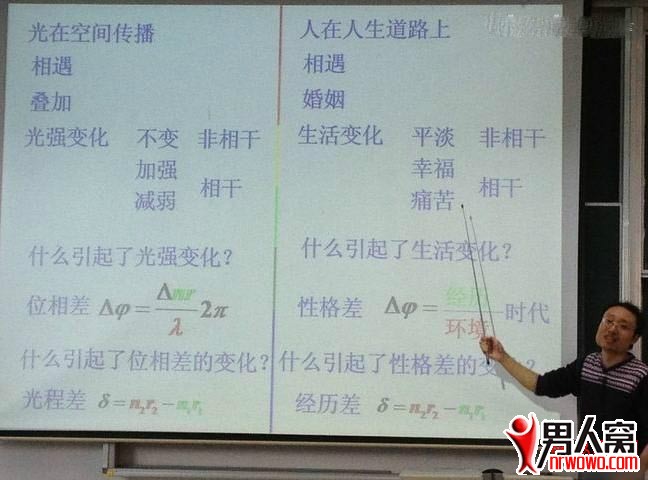 光在空间传播
相遇
叠加
光强变化 不变 非相干
加强
相干
减弱
什么引起了光强变化？
位相差 Δφ = Δnr/λ 2π
什么引起了位相差的变化？
光程差 δ = n₂r₂ − n₁r₁
人在人生道路上
相遇
婚姻
生活变化 平淡 非相干
幸福
相干
痛苦
什么引起了生活变化？
性格差 Δφ = 经历/环境 时代
什么引起了性格差的变化？
经历差 δ = n₂r₂ − n₁r₁
男人窝
nrwowo.com